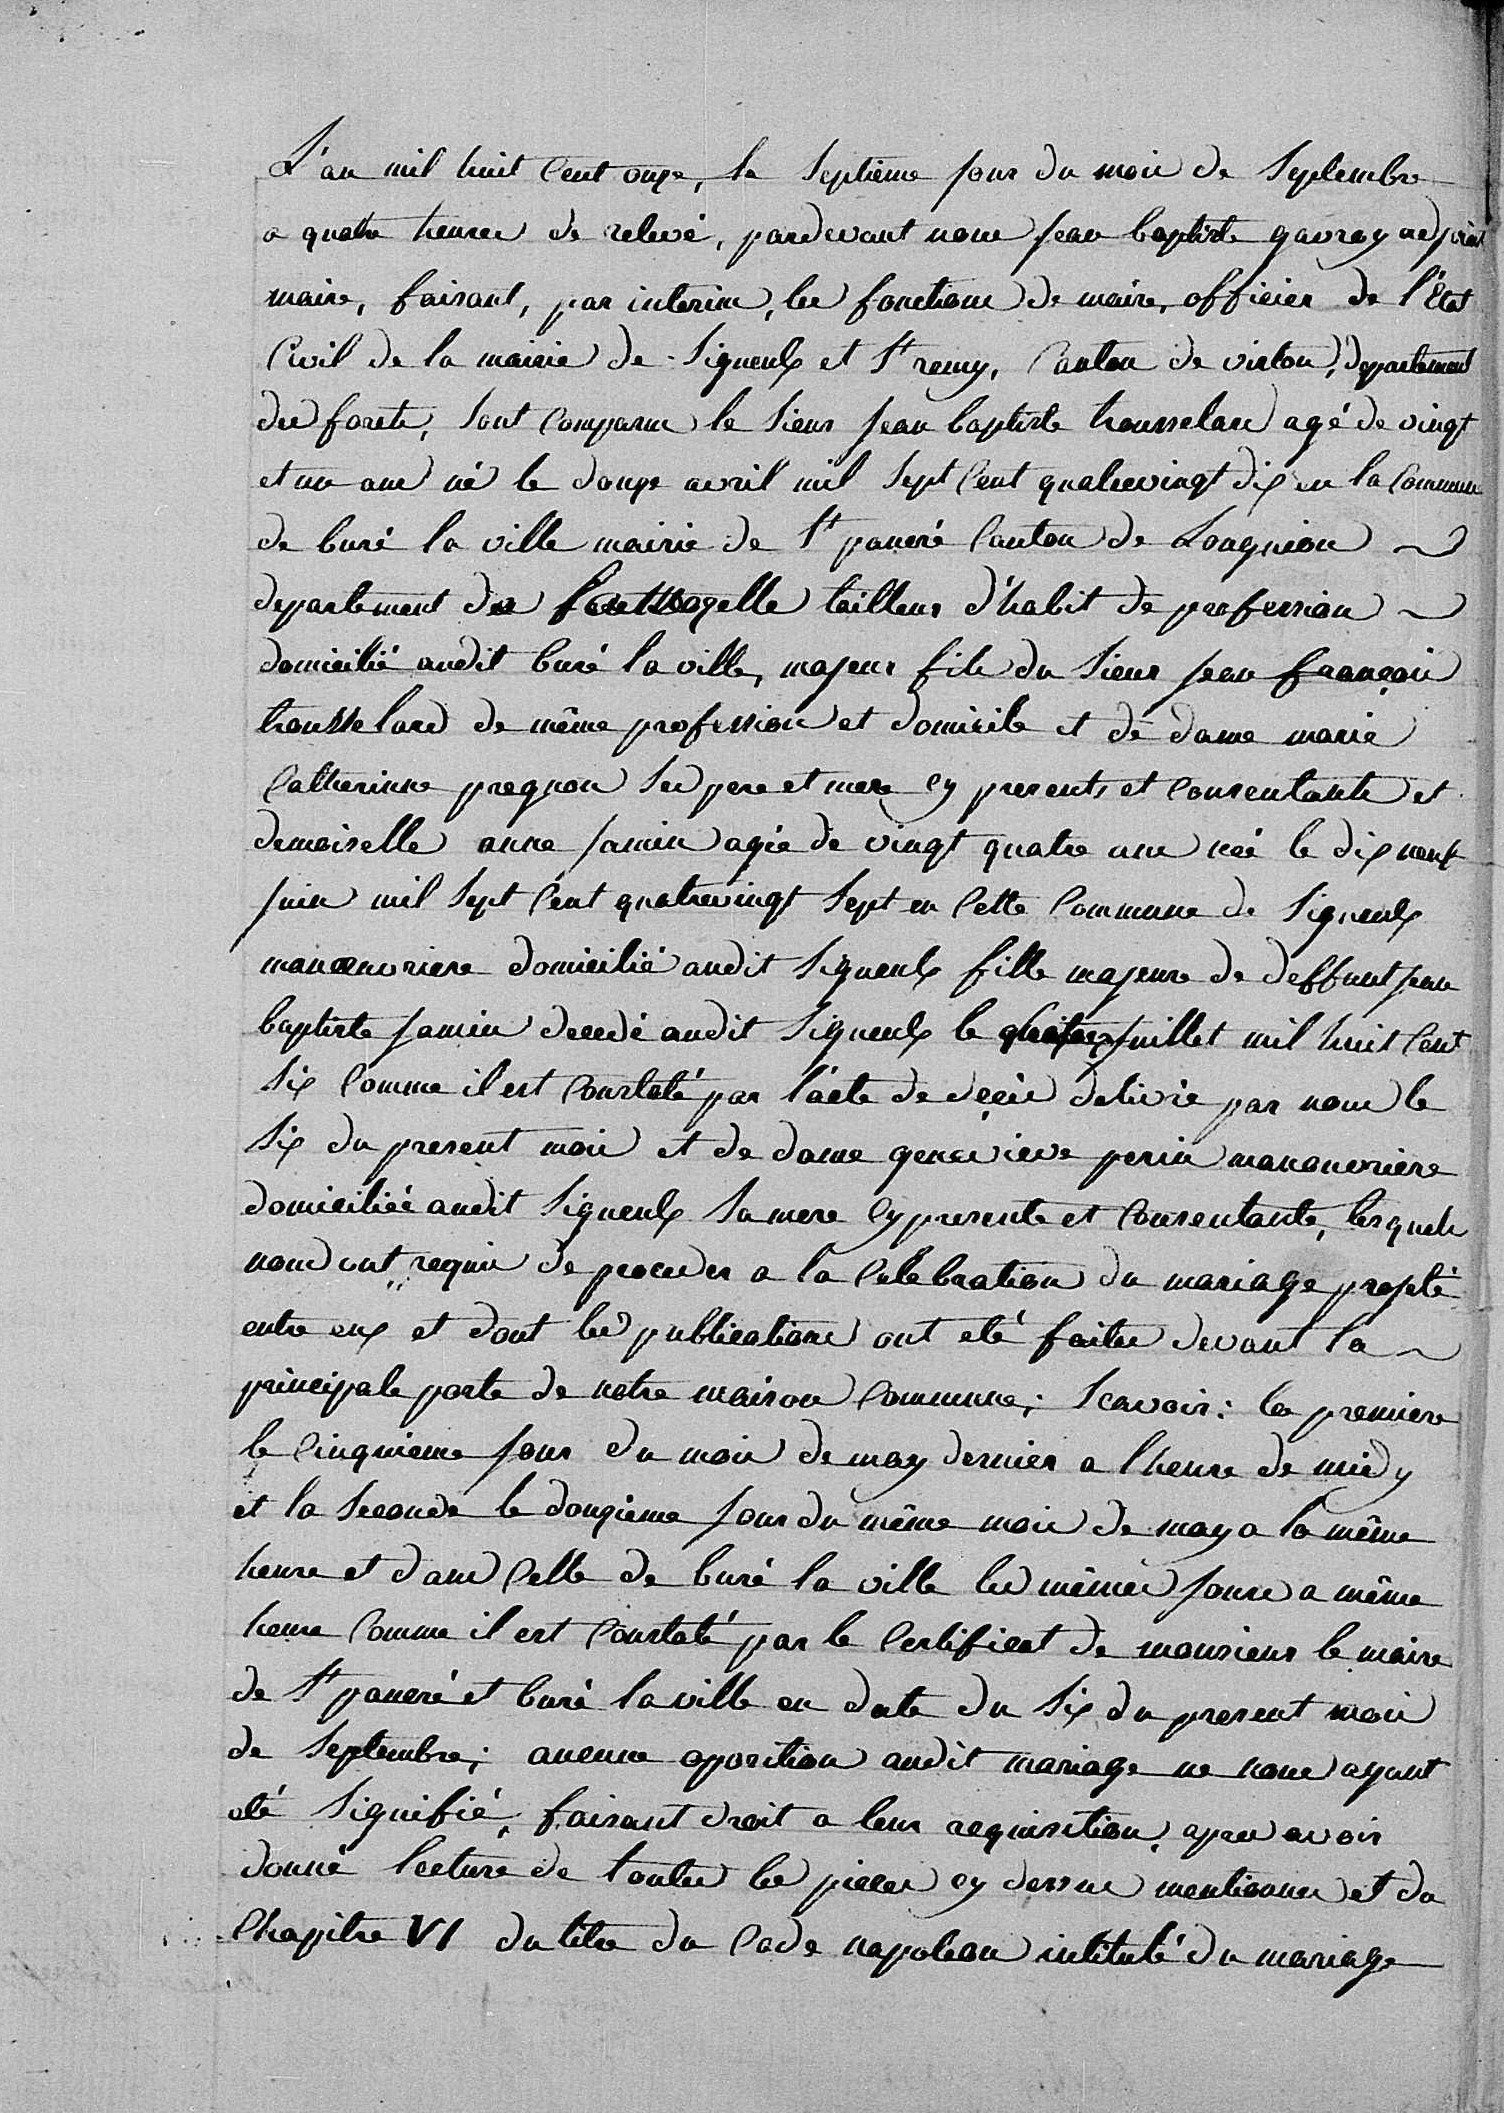 L'an mil huit Cent onze, le Septieme jour du mois de Septembre
a quatre heures de relevé, pardevant nous jean baptiste gavroy adjoint
maire, faisant, par interim, les fonctions de maire, officier de l'Etat
Civil de la mairie de Signeulx et St remy, Canton de virton, departement
des forets, Sont Comparus le Sieur jean baptiste trousselard agé de vingt
et un ans né le douze avril mil Sept Cent quatrevingt dix en la Commune
de buré la ville mairie de St pancré Canton de Longuion
departement de la Mozelle tailleur d'habit de profession
domicilié audit buré la ville, majeur fils du Sieur jean françois
trousselard de même profession et domicile et de dame marie
Catherinne pregnon Ses pere et mere Cy presents et Consentants et
demoiselle anne jamin agée de vingt quatre ans née le dix neuf
juin mil Sept Cent quatrevingt Sept en Cette Commune de Signeulx
manœuvriere domicilié audit Signeulx fille majeure de deffunt jean
baptiste jamin decedé audit Signeulx le juillet mil huit Cent
Six Comme il est Constaté par l'acte de décés delivré par nous le
Six du present mois et de dame genevieve perin manouvriere
domiciliée audit Signeulx Sa mere Cy presente et Consentante, lesquels
nous ont requis de proceder a la Celebration du mariage projeté
entre eux et dont les publications ont eté faites devant la
principale porte de notre maison Commune; Scavoir: la premiere
le Cinquieme jour du mois de may dernier a l'heure de midy
et la Seconde le douzieme jour du même mois de may a la même
heure et dans Celle de buré la ville les mêmes jours a même
heure Comme il est Constaté par le Certificat de monsieur le maire
de St pancré et buré la ville en date du Six du present mois
de Septembre; aucune oposition audit mariage ne nous ayant
eté Signifié, faisant droit a leur requisition, apres avoir
donné lecture de toutes les pieces cy dessus mentionnés et du
Chapitre VI du titre du Code napoleon intitulé du mariage